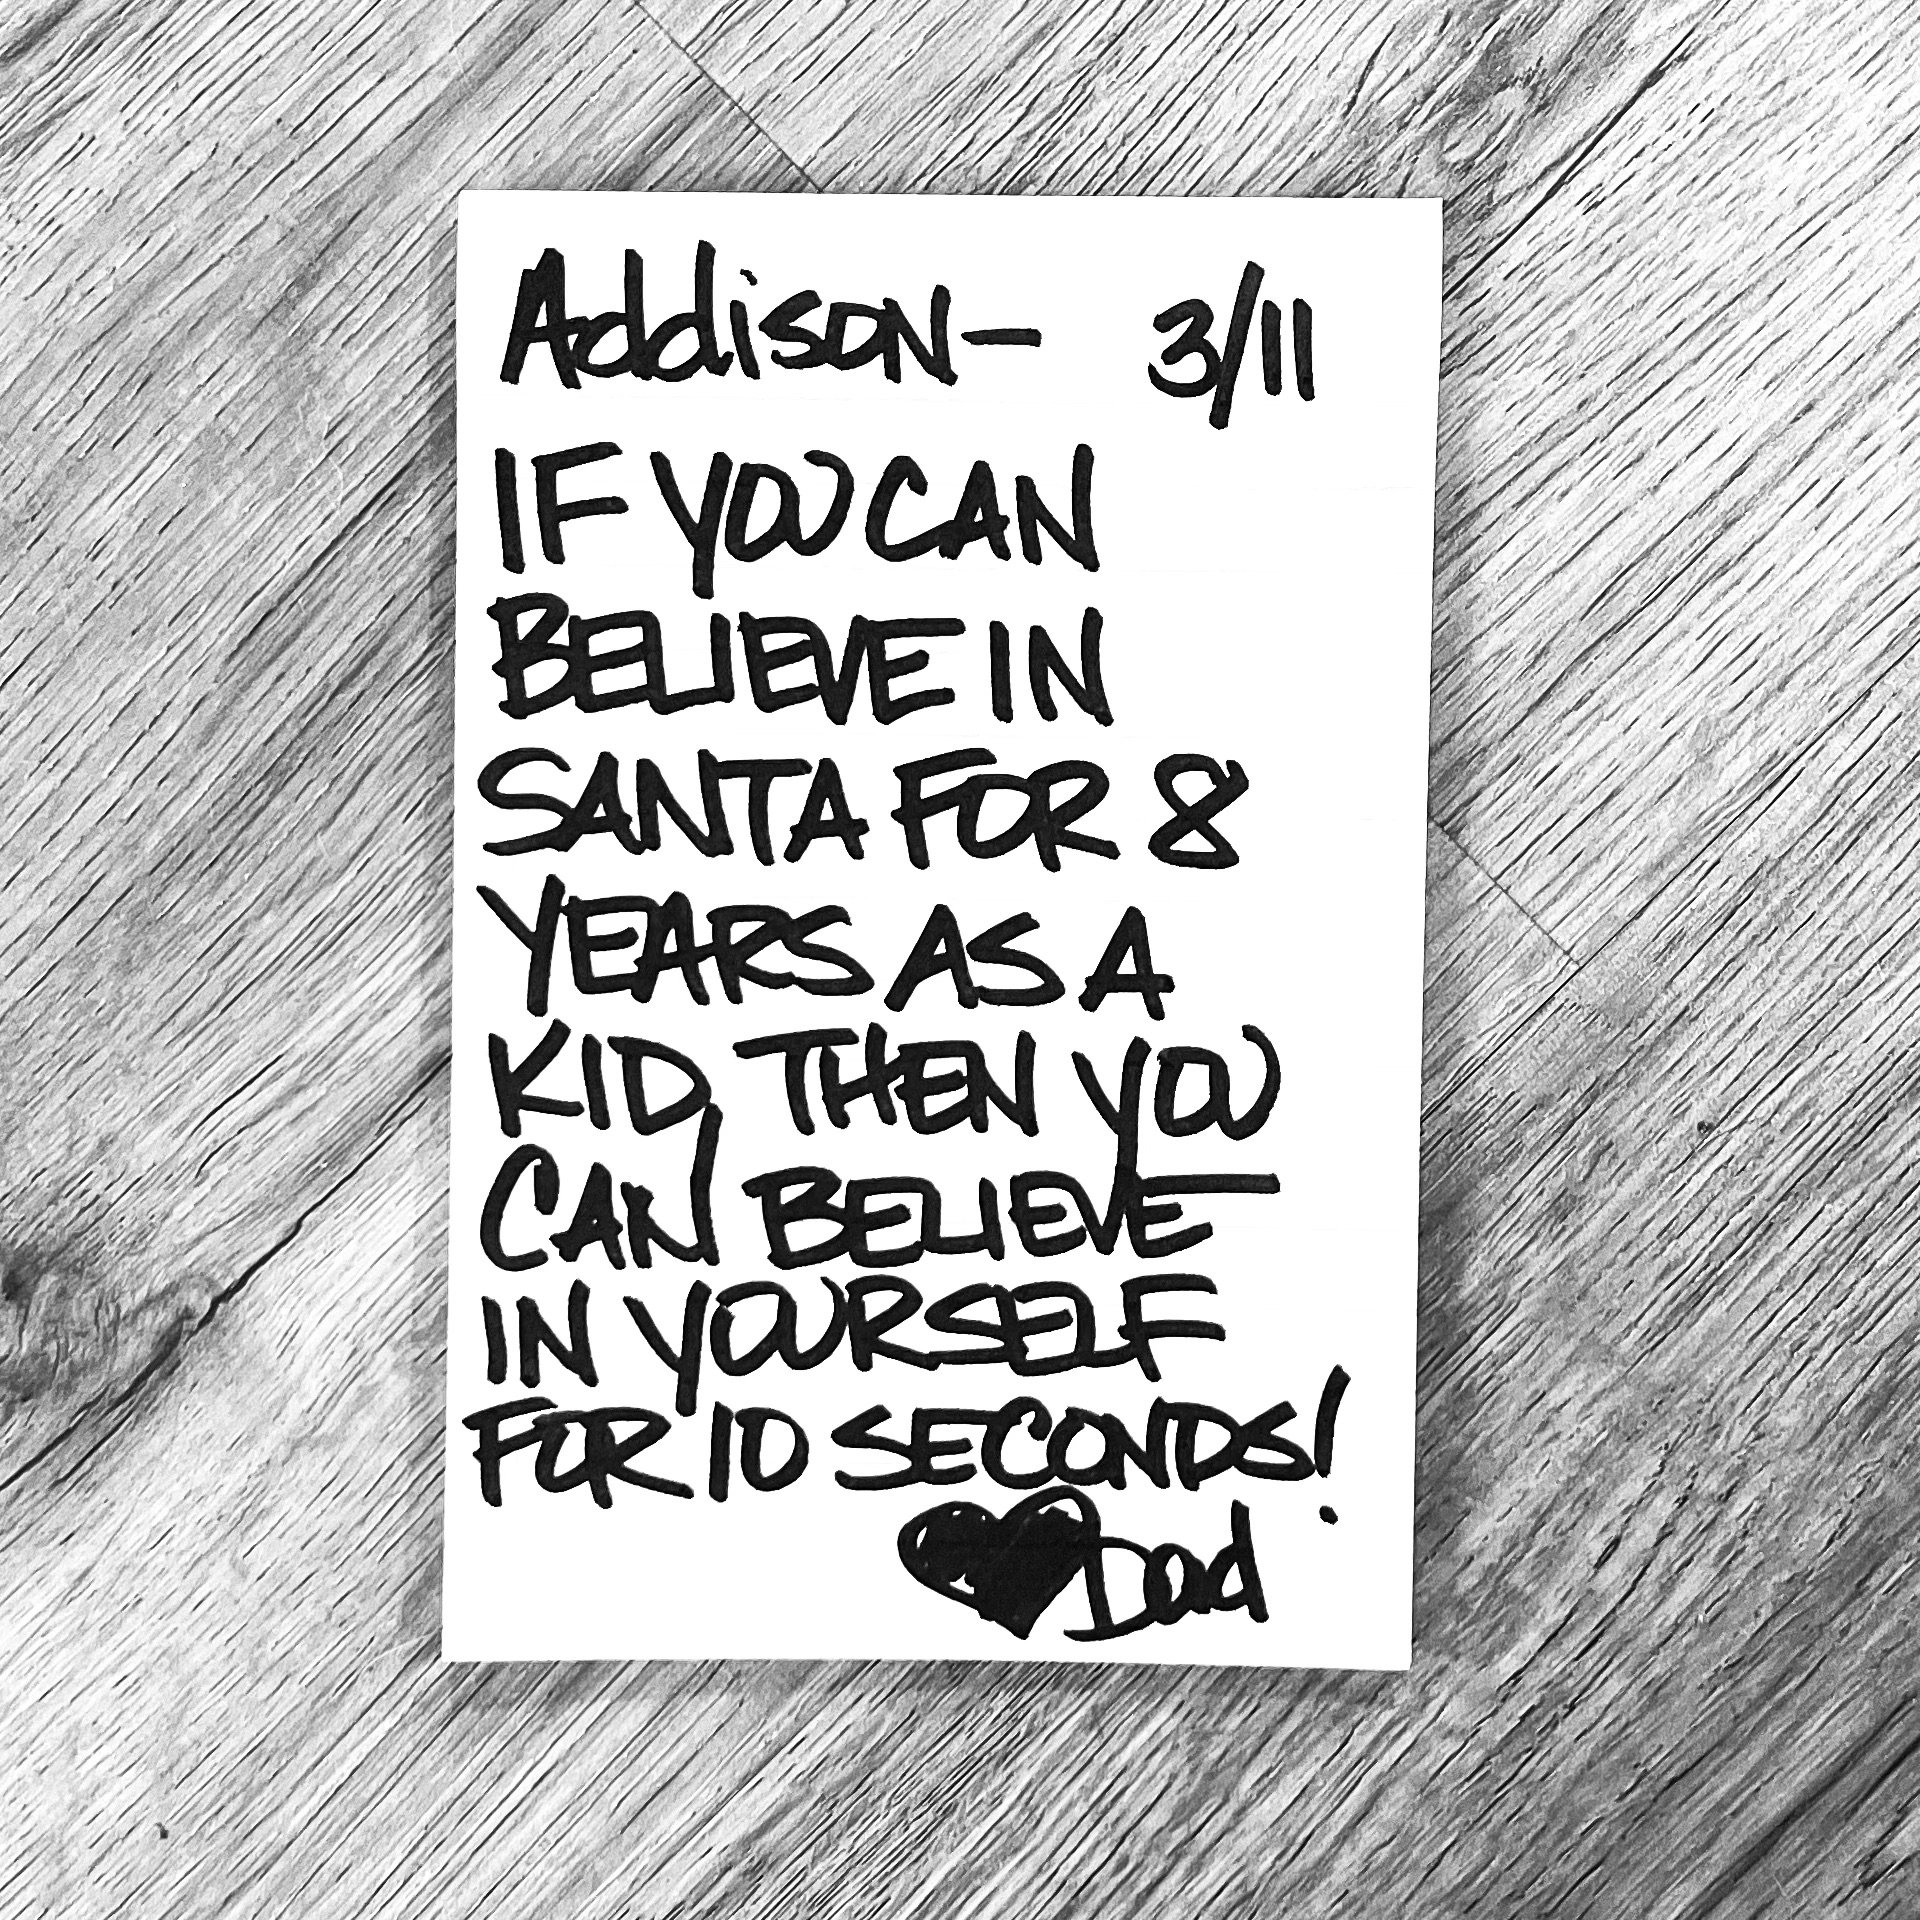 Addison- 3/11
IF YOU CAN
BELIEVE IN
SANTA FOR 8
YEARS AS A
KID, THEN YOU
CAN BELIEVE
IN YOURSELF
FOR 10 SECONDS!
♥ Dad